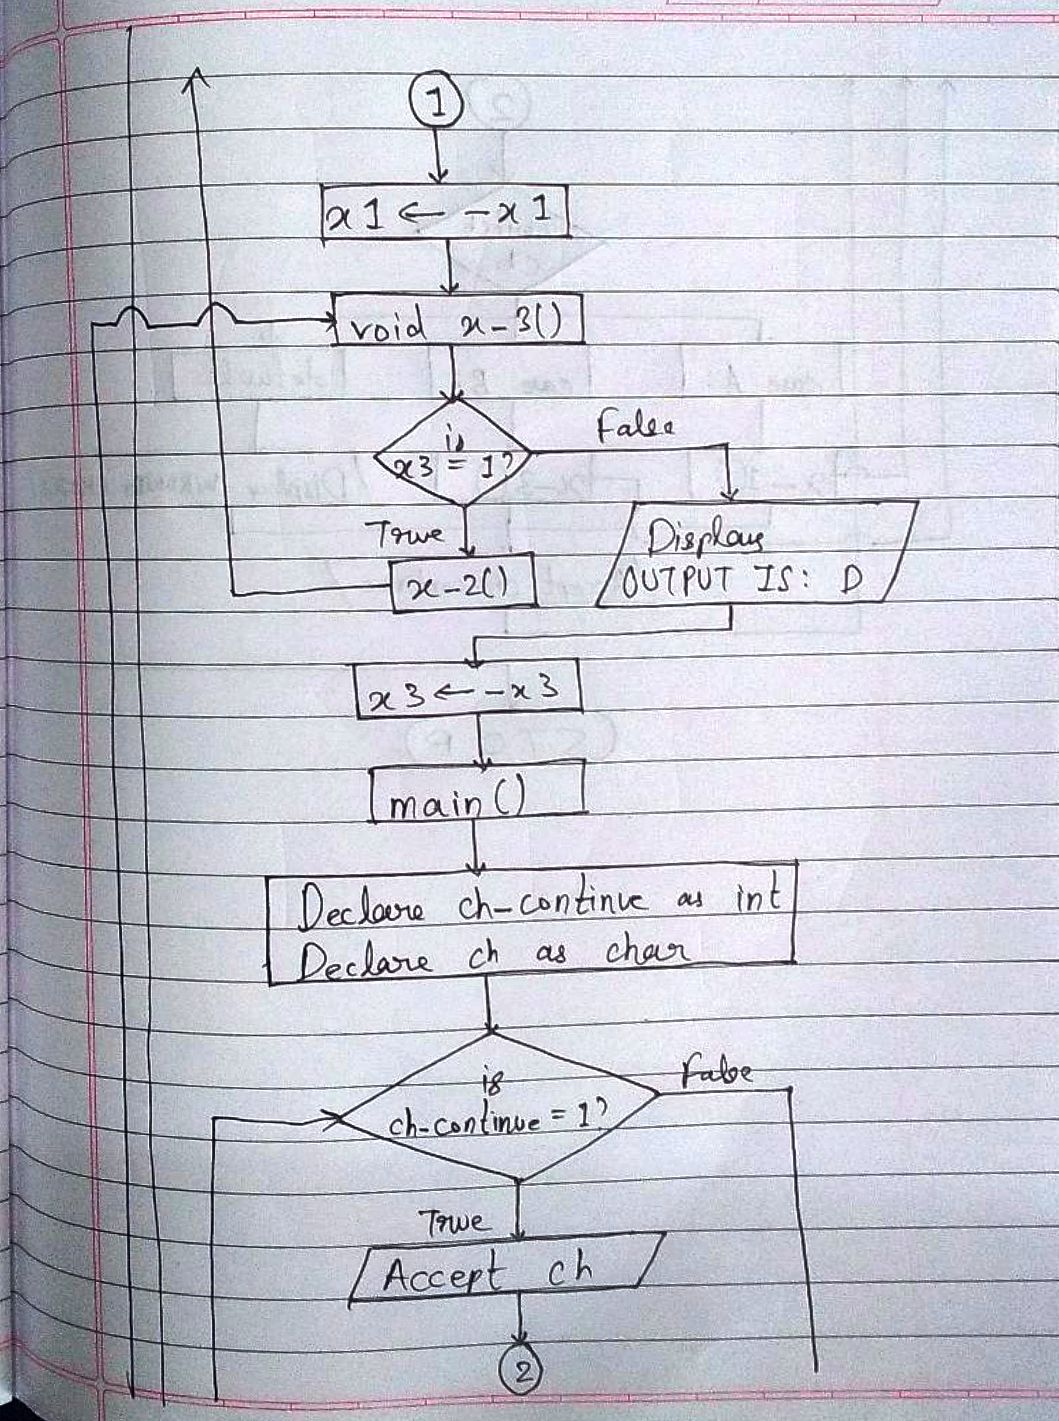 1
x1 ← -x1
void x-3()
False
is
x3 = 1?
True
Displays
OUTPUT IS: D
x-2()
x3 ← -x3
main()
Declare ch-continue as int
Declare ch as char
is
ch-continue = 1?
False
True
Accept ch
2